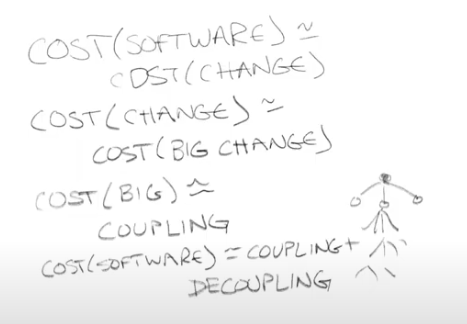 COST(SOFTWARE) ~
COST(CHANGE)
COST(CHANGE) ~
COST(BIG CHANGE)
COST(BIG) ≈
COUPLING
COST(SOFTWARE) = COUPLING +
DECOUPLING